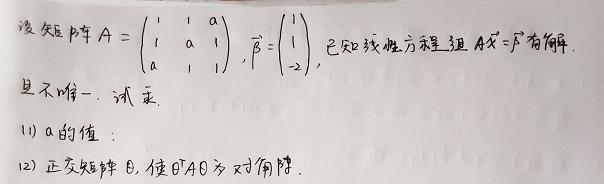 设矩阵 A = \begin{pmatrix} 1 & 1 & a \\ 1 & a & 1 \\ a & 1 & 1 \end{pmatrix}, \vec{β} = \begin{pmatrix} 1 \\ 1 \\ -2 \end{pmatrix}, 已知线性方程组 A\vec{x} = \vec{β} 有解.
且不唯一. 试求.
(1) a的值:
(2) 正交矩阵 θ, 使 θ^TAθ 为对角阵.